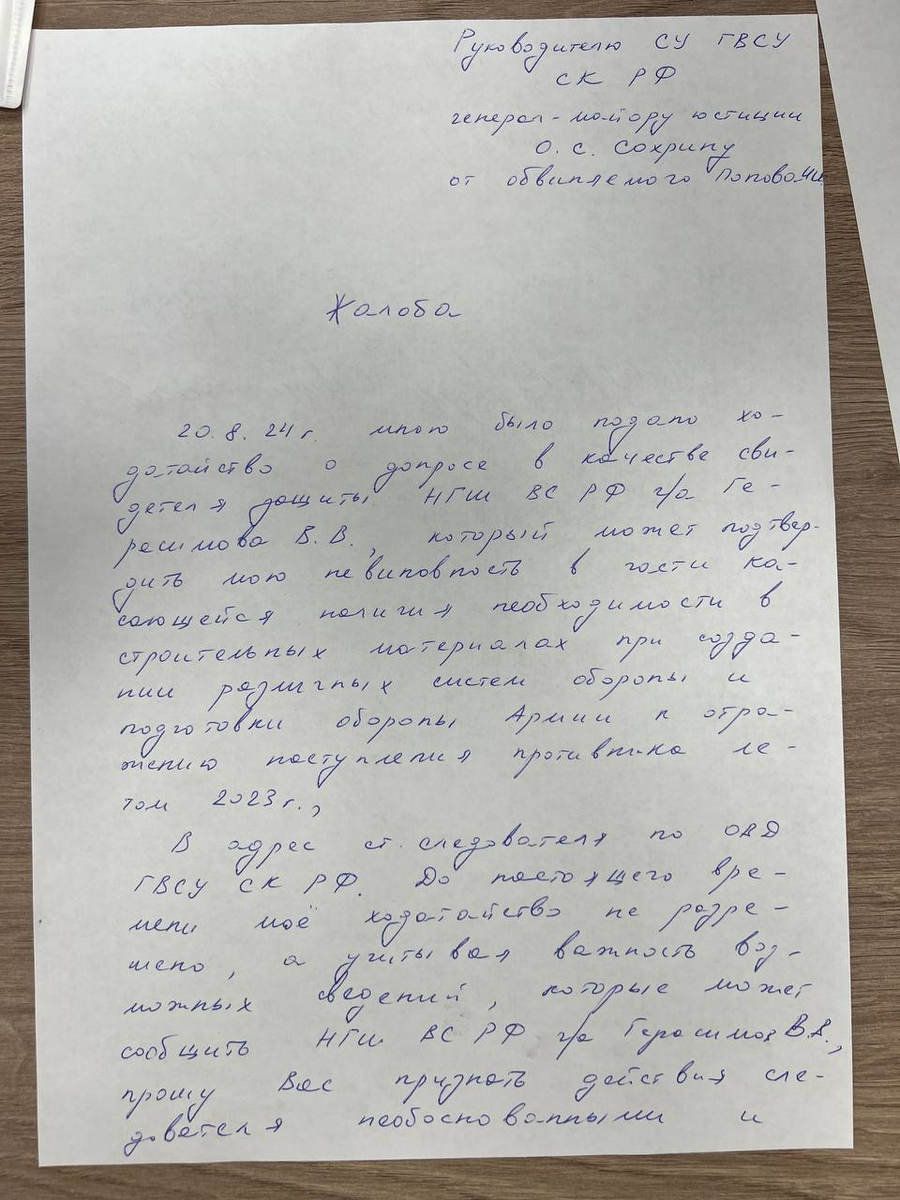 Руководителю СУ ГВСУ
СК РФ
генерал-майору юстиции
О. С. Сохрину
от обвиняемого Попова
Жалоба
20.8.24 г. мною было подано хо-
датайство о допросе в качестве сви-
детеля защиты НГШ ВС РФ г/а Ге-
расимова В.В., который может подтвер-
дить мою невиновность в части ка-
сающейся наличия необходимости в
строительных материалах при созда-
нии различных систем обороны и
подготовки обороны Армии к отра-
жению наступления противника ле-
том 2023 г.,
В адрес ст. следователя по ОВД
ГВСУ СК РФ. До настоящего вре-
мени моё ходатайство не разре-
шено, а учитывая важность воз-
можных сведений, которые может
сообщить НГШ ВС РФ г/а Герасимов В.В.,
прошу Вас признать действия сле-
дователя необоснованными и